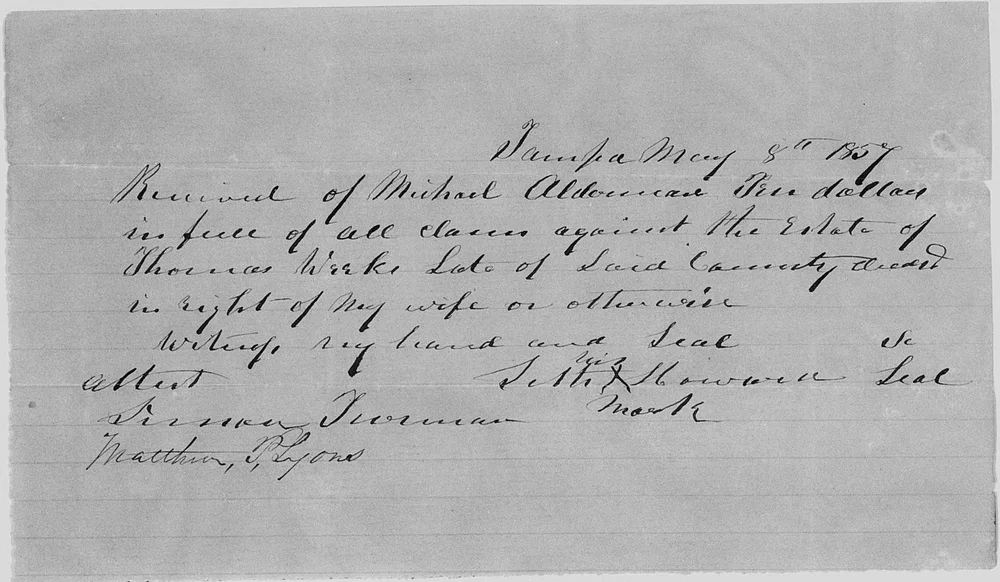 Tampa May 8th 1857
Received of Michael Alderman Ten dollars
in full of all claims against the Estate of
Thomas Weeks Late of Said County decesd
in right of my wife or otherwise
Witness my hand and Seal
Attest Seth his X mark Howard Seal
Simeon Turman
Matthew, P, Lyons